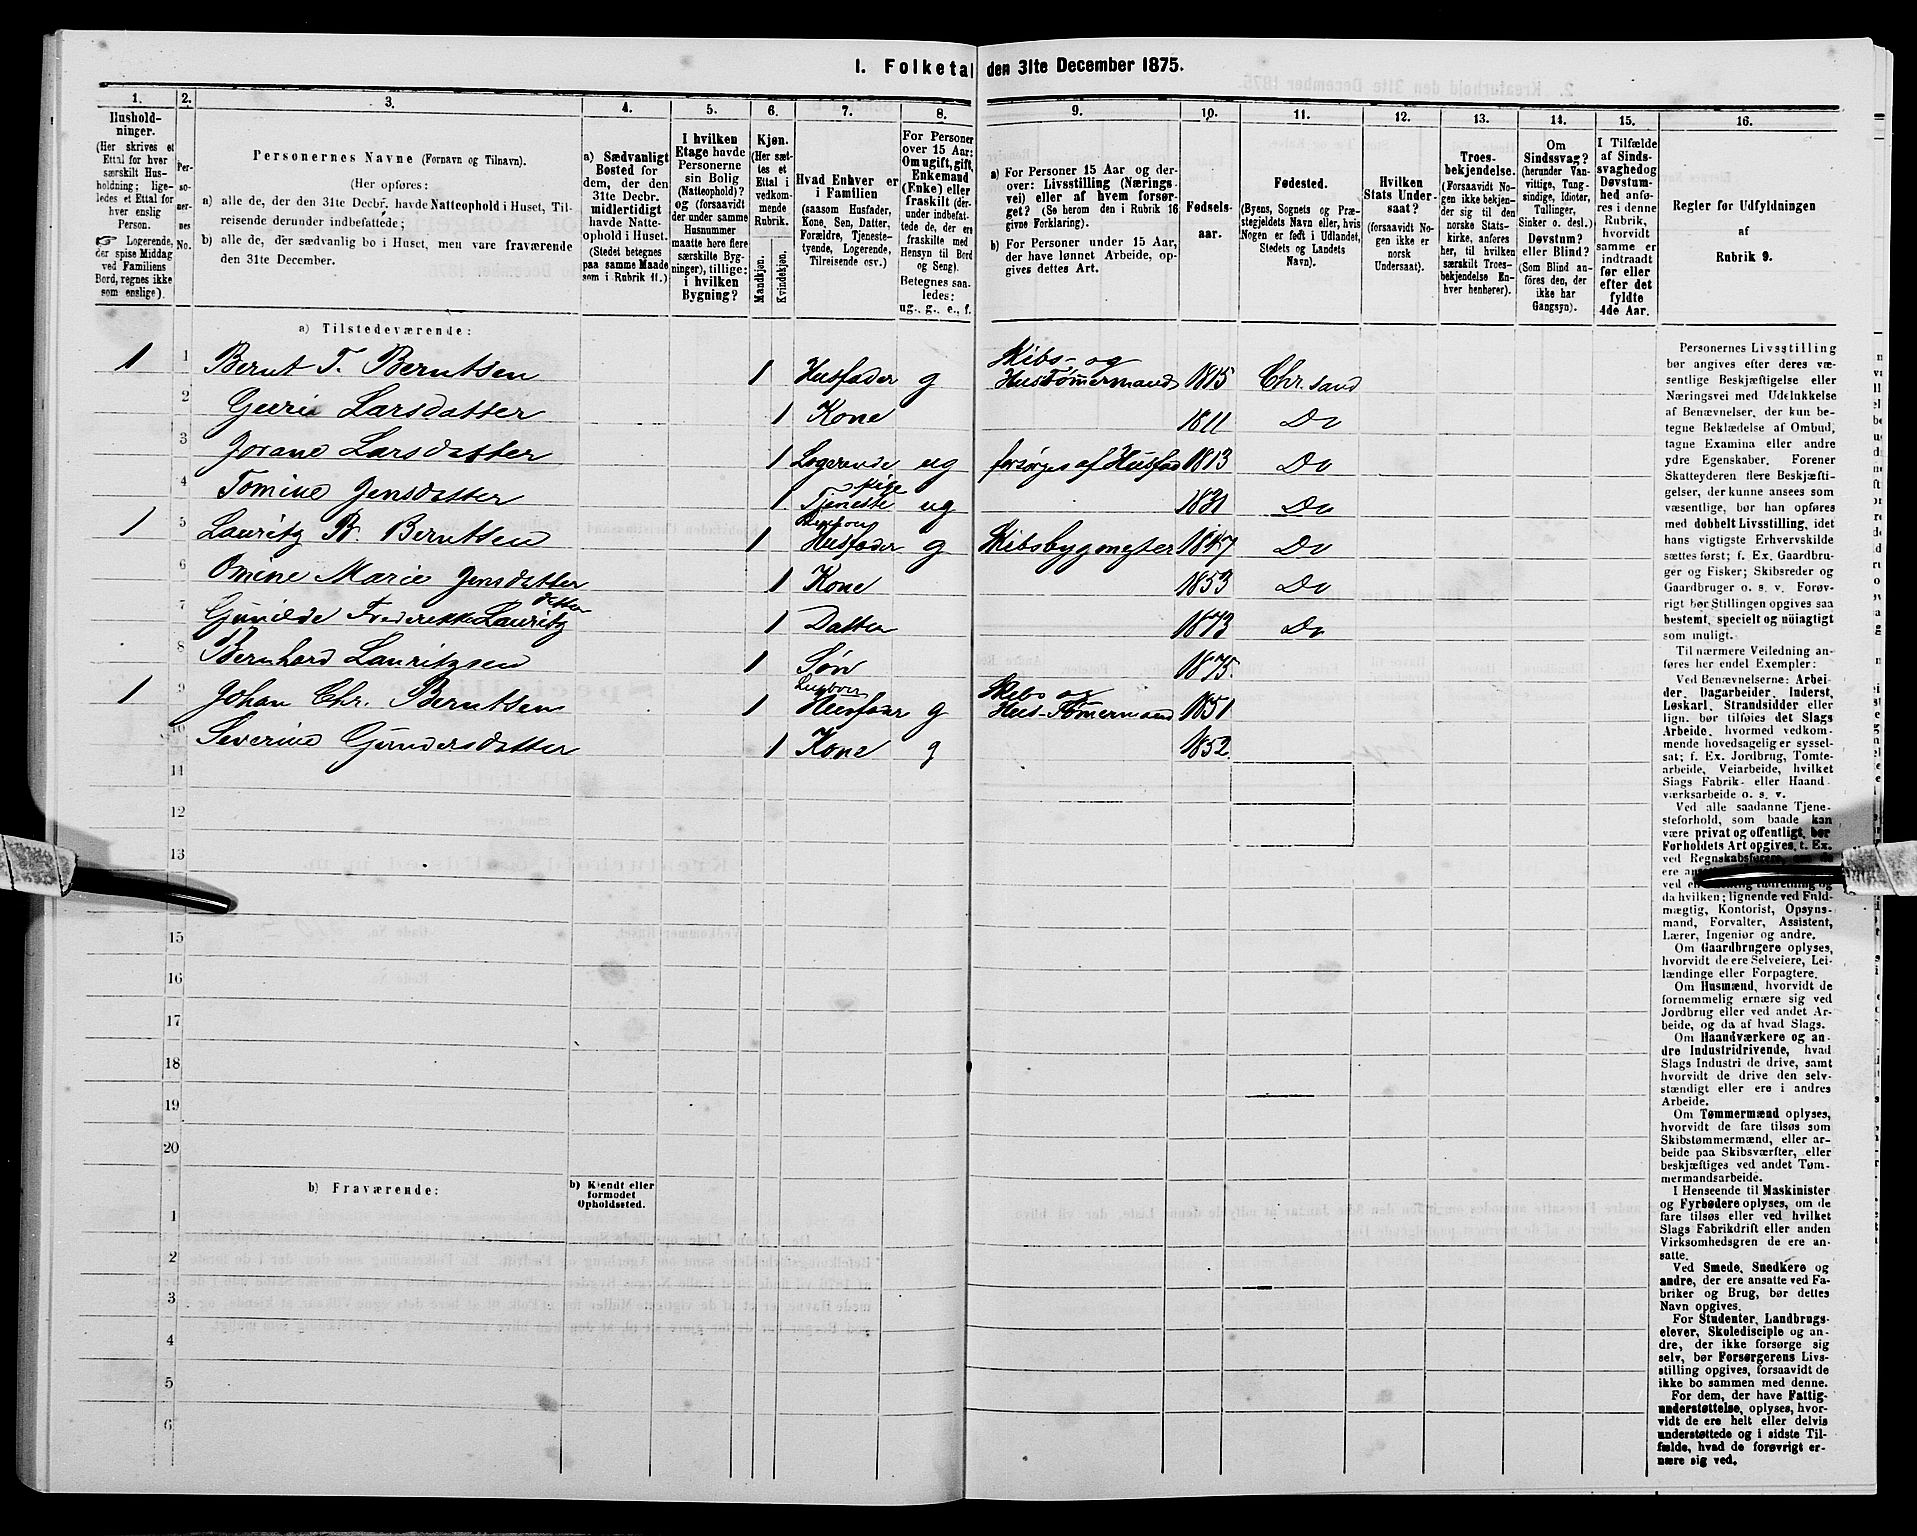 1. Folketal den 31te December 1875.
1.
Husholdninger.
(Her skrives et
Ettal for hver
særskilt Husholdning;
ligeledes et Ettal for
hver enslig
Person.
Logerende,
der spise Middag
ved Familiens
Bord, regnes ikke
som enslige).
2.
Personernes
No.
3.
Personernes Navne (Fornavn og Tilnavn).
(Her opføres:
a) alle de, der den 31te Decbr. havde Natteophold i Huset, Tilreisende
derunder indbefattede;
b) alle de, der sædvanlig bo i Huset, men vare fraværende
den 31te December.
4.
a) Sædvanligt
Bosted for
dem, der den
31te Decbr.
midlertidigt
havde Natteophold
i Huset.
(Stedet betegnes
paa samme Maade
som i Rubrik 11.)
5.
I hvilken
Etage havde
Personerne
sin Bolig
(Natteophold)?
og (forsaavidt
der under samme
Husnummer
maatte høre flere
særskilte Bygninger),
tillige:
i hvilken
Bygning?
6.
Kjøn.
(Her sættes
et
Ettal i
vedkommende
Rubrik.
Mandkjøn.
Kvindekjøn.
7.
Hvad Enhver er
i Familien
(saasom Husfader,
Kone, Søn, Datter,
Forældre, Tjenestetyende,
Logerende,
Tilreisende osv.)
8.
For Personer
over 15 Aar:
Om ugift, gift,
Enkemand
(Enke) eller
fraskilt (derunder
indbefattede
de, der ere
fraskilte med
Hensyn til Bord
og Seng).
Betegnes saaledes:
ug., g., e., f.
9.
a) For Personer 15 Aar og derover:
Livsstilling (Næringsvei)
eller af hvem forsørget?
(Se herom den i Rubrik 16
givne Forklaring).
b) For Personer under 15 Aar,
der have lønnet Arbeide, opgives
dettes Art.
10.
Fødselsaar.
11.
Fødested.
(Byens, Sognets og Præstegjeldets
Navn eller, hvis
Nogen er født i Udlandet,
Stedets og Landets
Navn).
12.
Hvilken
Stats Undersaat?
(forsaavidt Nogen
ikke er
norsk
Undersaat).
13.
Troesbekjendelse.
(Forsaavidt Nogen
ikke bekjender
sig til den
norske Statskirke,
anføres
her, til hvilken
særskilt Troesbekjendelse
Enhver
henhører).
14.
Om
Sindssvag?
(herunder Vanvittige,
Tungsindige,
Idioter,
Tullinger,
Sinker o. desl.)
Døvstum?
eller Blind?
(Som Blind anføres
den, der
ikke har
Gangsyn).
15.
I Tilfælde
af Sindssvaghed og
Døvstumhed
anføres
i denne
Rubrik,
hvorvidt
samme er
indtraadt
før eller
efter det
fyldte
4de Aar.
16.
Regler for Udfyldningen
af
Rubrik 9.
a) Tilstedeværende:
1 1 Bernt T. Berntsen 1 Husfader g Skibs- og Hustømmermand 1815 Chr.sand
2 Gurie Larsdatter 1 Kone 1811 Do
3 Jorane Larsdatter 1 Logerende ug forsørges af Husfad 1813 Do
4 Tomine Jensdatter 1 Tjenestepige ug 1831 Do
1 5 Lauritz B. Berntsen 1 Husfader g Skibsbygmester 1847 Do
6 Omine Marie Jensdatter 1 Kone 1853 Do
7 Gunilde Frederikke Lauritzdatter 1 Datter 1873 Do
8 Bernhard Lauritzsen 1 Søn 1875.
1 9 Johan Chr. Berntsen 1 Husfader g Skibs og Hus-Tømermand 1851
10 Severine Gundersdatter 1 Kone g 1852.
11
12
13
15
16
17
18
19
20
b) Fraværende:
b) Kjendt eller
formodet
Opholdssted.
1
2
3
4
5
6
Personernes Livsstilling
bør angives efter deres væsentlige
Beskjæftigelse eller
Næringsvei med Udelukkelse
af Benævnelser, der kun betegne
Beklædelse af Ombud,
tagne Examina eller andre
ydre Egenskaber. Forener
Skatteyderen flere Beskjæftigelser,
der kunne ansees som
væsentlige, bør han opføres
med dobbelt Livsstilling, idet
hans vigtigste Erhvervskilde
sættes først; f. Ex. Gaardbruger
og Fisker; Skibsreder og
Gaardbruger o. s. v. Forøvrigt
bør Stillingen opgives saa
bestemt, specielt og nøiagtigt
som muligt.
Til nærmere Veiledning anføres
her endel Exempler:
Ved Benævnelserne: Arbeider,
Dagarbeider, Inderst,
Løskarl, Strandsidder eller
lign. bør tilføies det Slags
Arbeide, hvormed vedkommende
hovedsagelig er sysselsat;
f. Ex. Jordbrug, Tomtearbeide,
Veiarbeide, hvilket
Slags Fabrik- eller Haandværksarbeide
o. s. v.
Ved alle saadanne Tjenesteforhold,
som baade kan
være privat og offentligt, bør
Forholdets Art opgives, t. Ex.
ved Regnskabsførere, om de
da hvilken; lignende ved Fuldmægtig,
Kontorist, Opsynsmand,
Forvalter, Assistent,
Lærer, Ingeniør og andre.
Om Gaardbrugere oplyses,
hvorvidt de ere Selveiere, Leilændinge
eller Forpagtere.
Om Husmænd, hvorvidt de
fornemmelig ernære sig ved
Jordbrug eller ved andet Arbeide,
og da af hvad Slags.
Om Haandværkere og andre
Industridrivende, hvad
Slags Industri de drive, samt
hvorvidt de drive den selvstændigt
eller ere i andres
Arbeide.
Om Tømmermænd oplyses,
hvorvidt de fare tilsøs som
Skibstømmermænd, eller arbeide
paa Skibsværfter, eller
beskjæftiges ved andet Tømmermandsarbeide.
I Henseende til Maskinister
og Fyrbødere oplyses, om de
fare tilsøs eller ved hvilket
Slags Fabrikdrift eller anden
Virksomhedsgren de ere ansatte.
Ved Smede, Snedkere og
andre, der ere ansatte ved Fabriker
og Brug, bør dettes
Navn opgives.
For Studenter, Landbrugselever,
Skoledisciple og andre,
der ikke forsørge sig
selv, bør Forsørgerens Livsstilling
opgives, forsaavidt de
ikke bo sammen med denne.
For dem, der have Fattigunderstøttelse,
oplyses, hvorvidt
de ere helt eller delvis
understøttede og i sidste Tilfælde,
hvad de forøvrigt ernære
sig ved.